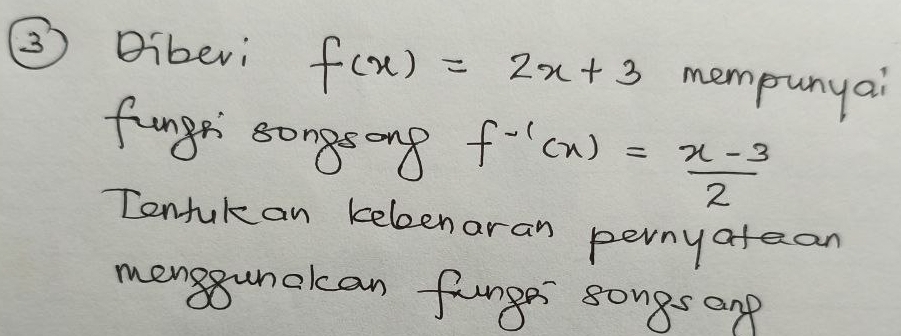 ③ Diberi f(x) = 2x + 3 mempunyai
fungsi songsang f⁻¹(x) = \frac{x - 3}{2}
Tentukan kebenaran pernyataan
menggunakan fungsi songsang